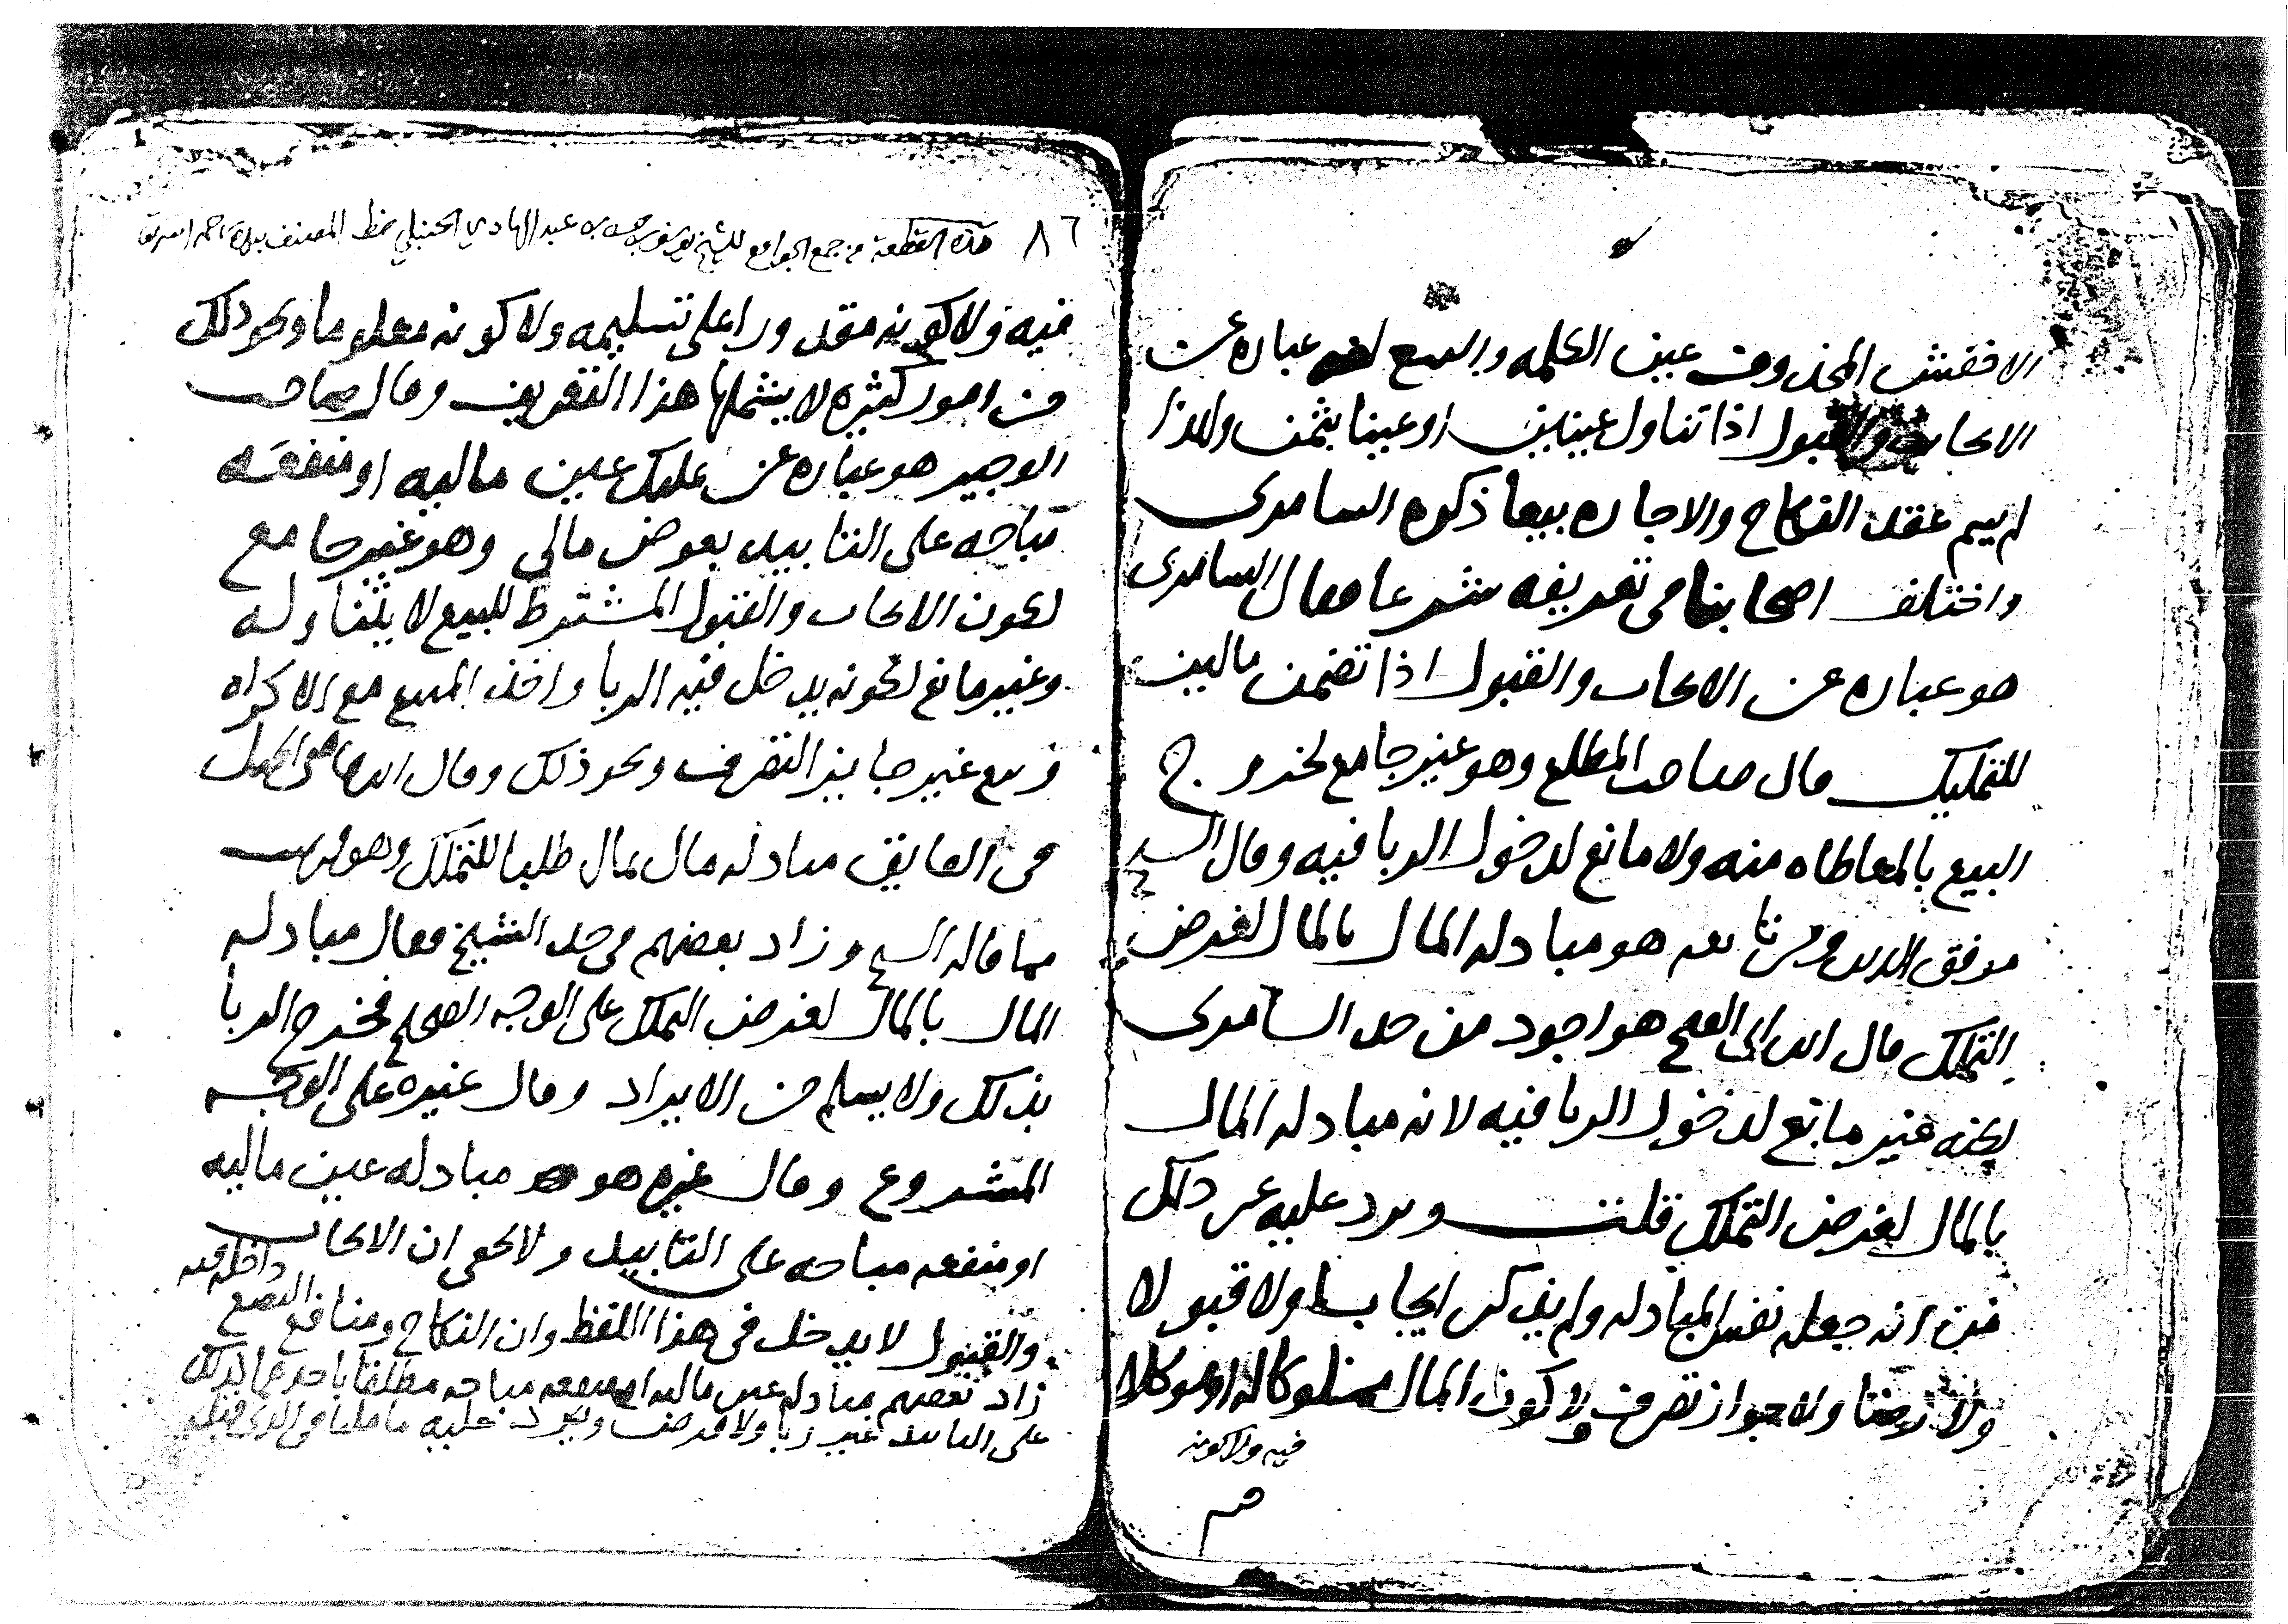 الاخفش المحذوف عين الكلمه والبيع لغه عباره عن
الايجاب والقبول اذا تناول عينين او عينا بثمن ولهذا
لم يسم عقد النكاح والاجاره بيعا ذكره السامري
واختلف اصحابنا في تعريفه شرعا فقال السامري
هو عباره عن الايجاب والقبول اذا تضمن مالين
للتمليك قال صاحب المطلع وهو غير جامع لخروج
البيع بالمعاطاه منه ولا مانع لدخول الربا فيه وقال الشيخ
موفق الدين ومن تابعه هو مبادله المال بالمال لغرض
التملك قال ابن ابي الفتح هو اجود من حد السامري
لكنه غير مانع لدخول الربا فيه لانه مبادله المال
بالمال لغرض التملك قلت ويرد عليه غير ذلك
من انه جعله نفس المبادله ولم يذكر ايجابا ولا قبولا
ولا رضا ولا جواز تصرف ولا كون المال مملوكا له او موكلا
فيه ولا كونه
٨٦
هذه القطعة من جمع الجوامع للشيخ يوسف بن حسن بن عبد الهادي الحنبلي بخط المصنف
فيه ولا كونه مقدورا على تسليمه ولا كونه معلوما ونحو ذلك
من امور كثيره لا يشملها هذا التعريف وقال صاحب
الوجيز هو عباره عن تمليك عين ماليه او منفعه
مباحه على التابيد بعوض مالي وهو غير جامع
لكون الايجاب والقبول المشترط للبيع لا يتناوله
وغير مانع لكونه يدخل فيه الربا واخذ المبيع مع الاكراه
وبيع غير جايز التصرف ونحو ذلك وقال ابن قاضي الجبل
في الفايق مبادله مال بمال طلبا للتملك وهو قريب
مما قاله الشيخ وزاد بعضهم في حد الشيخ فقال مبادله
المال بالمال لغرض التملك على الوجه الصحيح فخرج الربا
بذلك ولا يسلم من الايراد وقال غيره على الوجه
المشروع وقال غيره هو مبادله عين ماليه
او منفعه مباحه على التابيد ولا يخفى ان الايجاب
والقبول لا يدخل في هذا اللفظ وان النكاح ومنافع البضع داخله فيه
زاد بعضهم مبادله عين ماليه او منفعه مباحه مطلقا باحدهما كذلك
على التابيد غير ربا ولا قرض ويرد عليه ما قلنا في الذي قبله